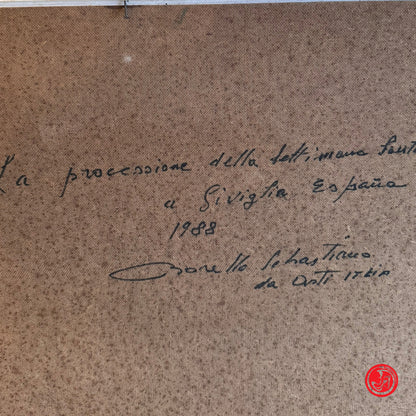 La processione della Settimana Sant
a Siviglia España
1988
Borello Sebastiano
da Asti ITALIA